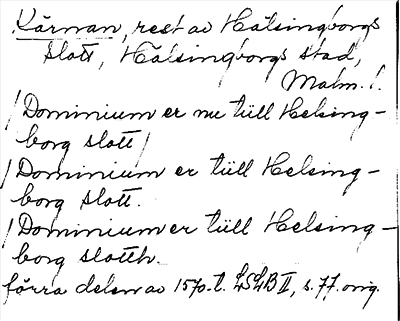 Kärnan, rest av Hälsingborgs
slott, Hälsingborgs stad,
Malm. l.
/Dominium er nu tiill Helsing-
borg slott/
/Dominium er tiill Helsing-
borg slott.
/Dominium er tiill Helsing-
borg slotth.
förra delen av 1570-t. LSLB II, s. 77. orig.